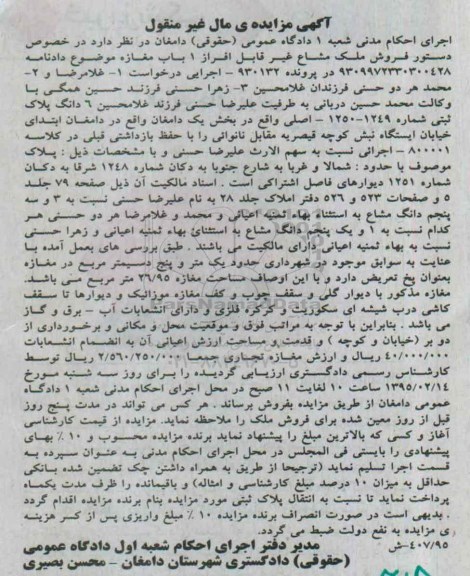 آگهی مزایده ی مال غیر منقول
اجرای احکام مدنی شعبه ۱ دادگاه عمومی (حقوقی) دامغان در نظر دارد در خصوص
دستور فروش ملک مشاع غیر قابل افراز ۱ باب مغازه موضوع دادنامه
۹۳۰۹۹۷۲۳۳۰۳۰۰۴۲۸ در پرونده ۹۳۰۱۳۲ - اجرایی درخواست ۱- غلامرضا و ۲-
محمد هر دو حسنی فرزندان غلامحسین ۳- زهرا حسنی فرزند حسین همگی با
وکالت محمد حسین دربانی به طرفیت علیرضا حسنی فرزند غلامحسین ۶ دانگ پلاک
ثبتی شماره ۱۲۴۹-۱۲۵۰ - اصلی واقع در بخش یک دامغان واقع در دامغان ابتدای
خیابان ایستگاه نبش کوچه قیصریه مقابل نانوائی را با حفظ بازداشتی قبلی در کلاسه
۸۰۰۰۰۱ - اجرائی نسبت به سهم الارث علیرضا حسنی و با مشخصات ذیل : پلاک
موصوف با حدود : شمالا و غربا به شارع جنوبا به دکان شماره ۱۲۴۸ شرقا به دکان
شماره ۱۲۵۱ دیوارهای فاصل اشتراکی است . اسناد مالکیت آن ذیل صفحه ۷۹ جلد
۵ و صفحات ۵۲۳ و ۵۲۶ دفتر املاک جلد ۲۸ به نام علیرضا حسنی نسبت به ۳ و سه
پنجم دانگ مشاع به استثناء بهاء ثمنیه اعیانی و محمد و غلامرضا هر دو حسنی هر
کدام نسبت به ۱ و یک پنجم دانگ مشاع به استثنائ بهاء ثمنیه اعیانی و زهرا حسنی
نسبت به بهاء ثمنیه اعیانی دارای مالکیت می باشند . طبق بررسی های بعمل آمده با
عنایت به سوابق موجود در شهرداری حدود یک متر و پنج دسیمتر مربع در مغازه
بعنوان پخ تعریض دارد و با این اوصاف مساحت مغازه ۳۶/۹۵ متر مربع می باشد.
مغازه مذکور با دیوار گلی و سقف چوب و کف مغازه موزائیک و دیوارها تا سقف
کاشی درب شیشه ای سکوریت و کرکره فلزی و دارای انشعابات آب - برق و گاز
می باشد . بنابراین با توجه به مراتب فوق و موقعیت محل و مکانی و برخورداری از
دو بر (خیابان و کوچه ) و قدمت و مساحت ارزش اعیانی آن به انضمام انشعابات
۴۰/۰۰۰/۰۰۰ ریال و ارزش مغازه تجاری جمعا ۲/۵۶۰/۲۵۰/۰۰۰ ریال توسط
کارشناس رسمی دادگستری ارزیابی گردیده را برای روز سه شنبه مورخ
۱۳۹۵/۰۲/۱۴ ساعت ۱۰ لغایت ۱۱ صبح در محل اجرای احکام مدنی شعبه ۱ دادگاه
عمومی دامغان از طریق مزایده بفروش برساند . هر کس می تواند در مدت پنج روز
قبل از روز معین شده برای فروش ملک را ملاحظه نماید. مزایده از قیمت کارشناسی
آغاز و کسی که بالاترین مبلغ را پیشنهاد نماید برنده مزایده محسوب و ۱۰ % بهای
پیشنهادی را بایستی فی المجلس در محل اجرای احکام مدنی به عنوان سپرده به
قسمت اجرا تسلیم نماید (ترجیحا از طریق به همراه داشتن چک تضمین شده بانکی
حداقل به میزان ۱۰ درصد مبلغ کارشناسی و امثاله) و باقیمانده را ظرف مدت یکماه
پرداخت نماید تا نسبت به انتقال پلاک ثبتی مورد مزایده بنام برنده مزایده اقدام گردد
. بدیهی است در صورت انصراف برنده مزایده ۱۰ % مبلغ واریزی پس از کسر هزینه
ی مزایده به نفع دولت ضبط می گردد.
۴۰۷/۹۵-ش
مدیر دفتر اجرای احکام شعبه اول دادگاه عمومی
(حقوقی) دادگستری شهرستان دامغان - محسن بصیری